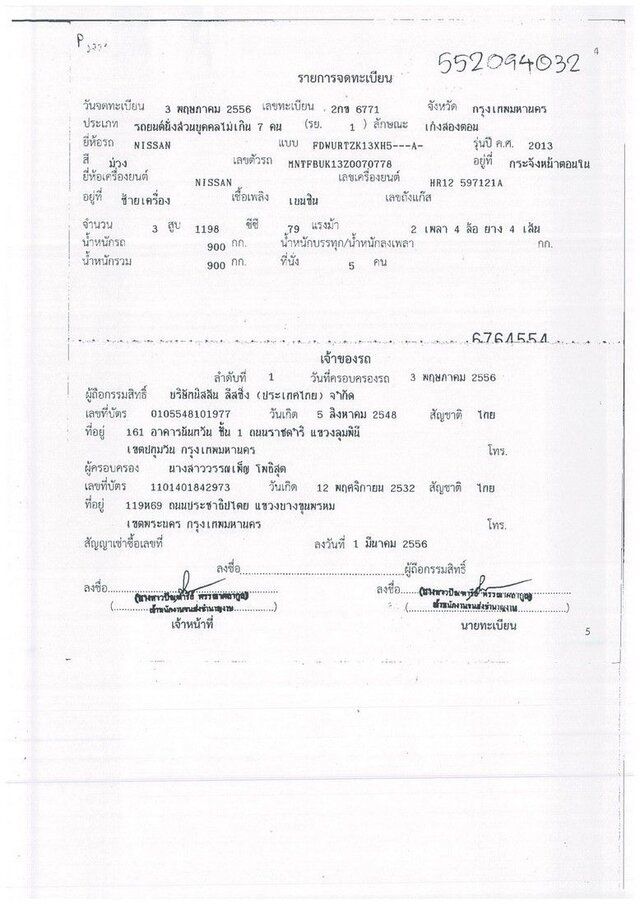 P
552094032
4
รายการจดทะเบียน
วันจดทะเบียน 3 พฤษภาคม 2556 เลขทะเบียน 2กข 6771 จังหวัด กรุงเทพมหานคร
ประเภท รถยนต์นั่งส่วนบุคคลไม่เกิน 7 คน (รย. 1) ลักษณะ เก๋งสองตอน
ยี่ห้อรถ NISSAN แบบ FDWURTZK13XH5---A- รุ่นปี ค.ศ. 2013
สี ม่วง เลขตัวรถ MNTFBUK13Z0070778 อยู่ที่ กระจังหน้าตอนใน
ยี่ห้อเครื่องยนต์ NISSAN เลขเครื่องยนต์ HR12 597121A
อยู่ที่ ซ้ายเครื่อง เชื้อเพลิง เบนซิน เลขถังแก๊ส
จำนวน 3 สูบ 1198 ซีซี 79 แรงม้า 2 เพลา 4 ล้อ ยาง 4 เส้น
น้ำหนักรถ 900 กก. น้ำหนักบรรทุก/น้ำหนักลงเพลา กก.
น้ำหนักรวม 900 กก. ที่นั่ง 5 คน
6764554
เจ้าของรถ
ลำดับที่ 1 วันที่ครอบครองรถ 3 พฤษภาคม 2556
ผู้ถือกรรมสิทธิ์ บริษัทนิสสัน ลีสซิ่ง (ประเทศไทย) จำกัด
เลขที่บัตร 0105548101977 วันเกิด 5 สิงหาคม 2548 สัญชาติ ไทย
ที่อยู่ 161 อาคารนันทวัน ชั้น 1 ถนนราชดำริ แขวงลุมพินี
เขตปทุมวัน กรุงเทพมหานคร โทร.
ผู้ครอบครอง นางสาววรรณเพ็ญ โพธิสุด
เลขที่บัตร 1101401842973 วันเกิด 12 พฤศจิกายน 2532 สัญชาติ ไทย
ที่อยู่ 119ห69 ถนนประชาธิปไตย แขวงบางขุนพรหม
เขตพระนคร กรุงเทพมหานคร โทร.
สัญญาเช่าซื้อเลขที่ ลงวันที่ 1 มีนาคม 2556
ลงชื่อ ผู้ถือกรรมสิทธิ์
ลงชื่อ ลงชื่อ
เจ้าพนักงานขนส่งชำนาญงาน เจ้าพนักงานขนส่งชำนาญงาน
เจ้าหน้าที่ นายทะเบียน
5